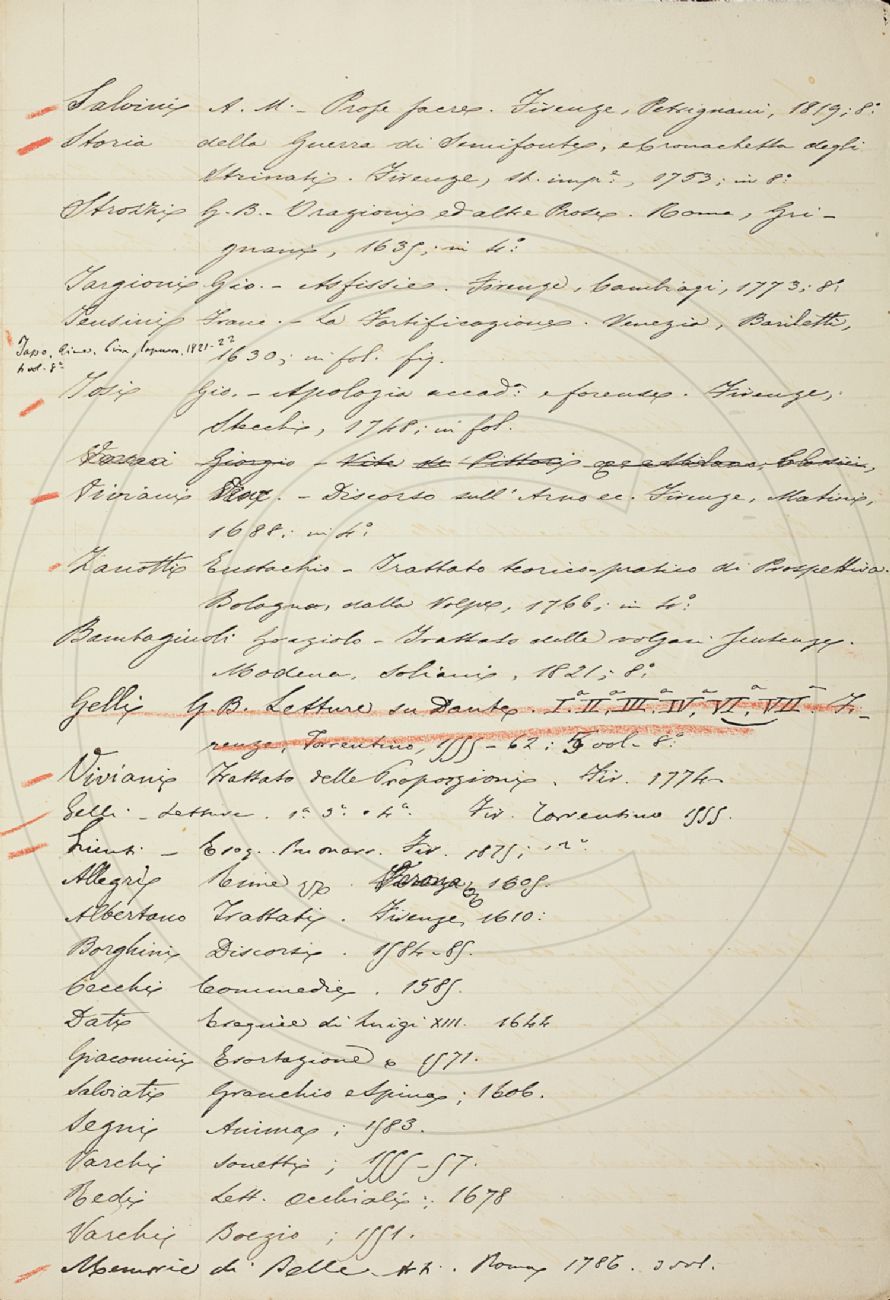 Salvini A. M. - Prose sacre. Firenze, Petrignani, 1819; 8.°
Storia della Guerra di Semifonte, e Cronachetta degli
Strinati. Firenze, st. imp.ª, 1753; in 8.°
Strozzi G. B. - Orazioni ed altre Prose. Roma, Gri-
gnani, 1635; in 4.°
Targioni Gio. - Asfissie. Firenze, Cambiagi, 1773; 8.°
Tensini Franc. - La Fortificazione. Venezia, Bariletti,
1630; in fol. fig.
Tasso, Rime. Pisa, Capurro. 1821-22
4 vol. 8.°
Tosi Gio. - Apologia accad. e forense. Firenze,
Stecchi, 1748; in fol.
Vasari Giorgio - Vite de Pittori Milano, Classici,
Viviani Vinc. - Discorso sull'Arno ec. Firenze, Matini,
1688; in 4.°
Zanotti Eustachio - Trattato teorico-pratico di Prospettiva.
Bologna, dalla Volpe, 1766; in 4.°
Bambagiuoli Graziolo - Trattato delle volgari sentenze.
Modena, Soliani, 1821; 8.°
Gelli G. B. Letture su Dante. Iª IIª, IIIª, IVª, VIª, VII. Fi-
renze, Torrentino, 1555-62; vol. 8.°
Viviani Trattato delle Proporzioni. Fir. 1774
Gelli - Letture. 1ª 3ª e 4ª. Fir. Torrentino 1555.
Buonarr. Fir. 1875; 12°
Allegri Rime 1605.
Albertano Trattati. Firenze, 1610:
Borghini Discorsi. 1584-85.
Cecchi Commedie. 1585.
Dati Esequie di Luigi XIII. 1644
Giacomini Esortazione 1571.
Salviati Granchio e Spina; 1606.
Segni Anima; 1583.
Varchi Sonetti; 1555-57.
Redi Lett. Occhiali; 1678
Varchi Boezio; 1551.
Memorie di Belle Arti. Roma 1786. 3 vol.